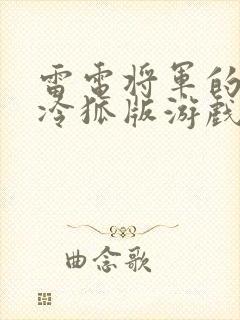 雷电将军的
冷狐版游戏
曲念歌